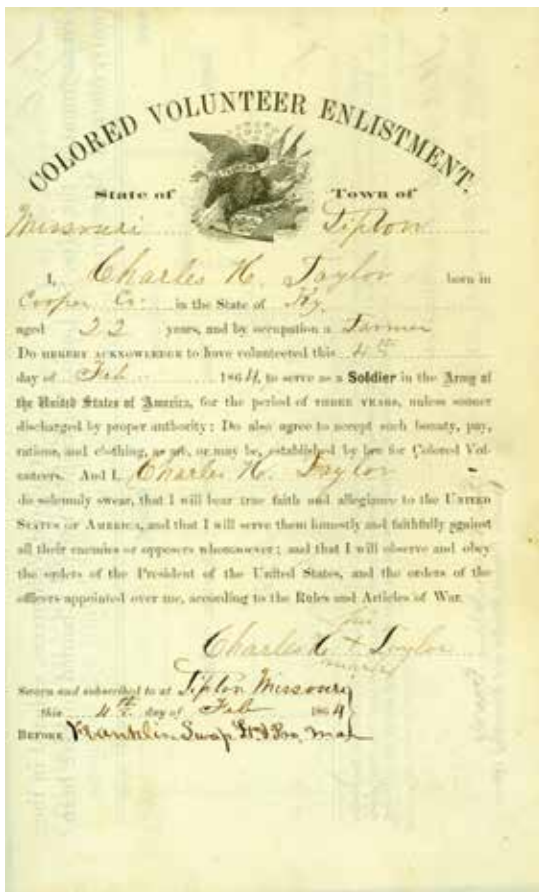 COLORED VOLUNTEER ENLISTMENT.
State of Town of
Missouri Tipton
I, Charles H. Taylor born in
Cooper Co: in the State of Ky.
aged 22 years, and by occupation a Farmer
Do HEREBY ACKNOWLEDGE to have volunteered this 4th
day of Feb 1864, to serve as a Soldier in the Army of
the United States of America, for the period of THREE YEARS, unless sooner
discharged by proper authority: Do also agree to accept such bounty, pay,
rations, and clothing, as are, or may be, established by law for Colored Vol-
unteers. And I, Charles H. Taylor
do solemnly swear, that I will bear true faith and allegiance to the UNITED
STATES OF AMERICA, and that I will serve them honestly and faithfully against
all their enemies or opposers whomsoever; and that I will observe and obey
the orders of the President of the United States, and the orders of the
officers appointed over me, according to the Rules and Articles of War.
his
Charles H + Taylor
mark
Sworn and subscribed to at Tipton Missoury
this 4th day of Feb 1864
BEFORE Franklin Swap Pro. Mar